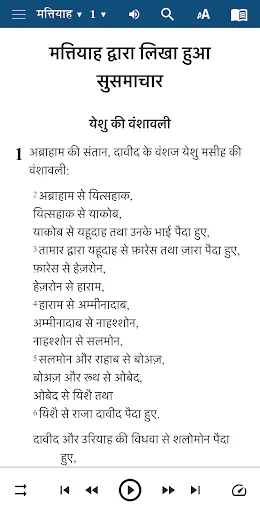 मत्तियाह ▾ 1 ▾ AA
मत्तियाह द्वारा लिखा हुआ
सुसमाचार
येशु की वंशावली
1 अब्राहाम की संतान, दावीद के वंशज येशु मसीह की
वंशावली:
2 अब्राहाम से यित्सहाक,
यित्सहाक से याकोब,
याकोब से यहूदाह तथा उनके भाई पैदा हुए,
3 तामार द्वारा यहूदाह से फ़ारेस तथा ज़ारा पैदा हुए,
फ़ारेस से हेज़रोन,
हेज़रोन से हाराम,
4 हाराम से अम्मीनादाब,
अम्मीनादाब से नाहश्शोन,
नाहश्शोन से सलमोन,
5 सलमोन और राहाब से बोअज़,
बोअज़ और रूथ से ओबेद,
ओबेद से यिशै तथा
6 यिशै से राजा दावीद पैदा हुए.
दावीद और उरियाह की विधवा से शलोमोन पैदा
हुए,